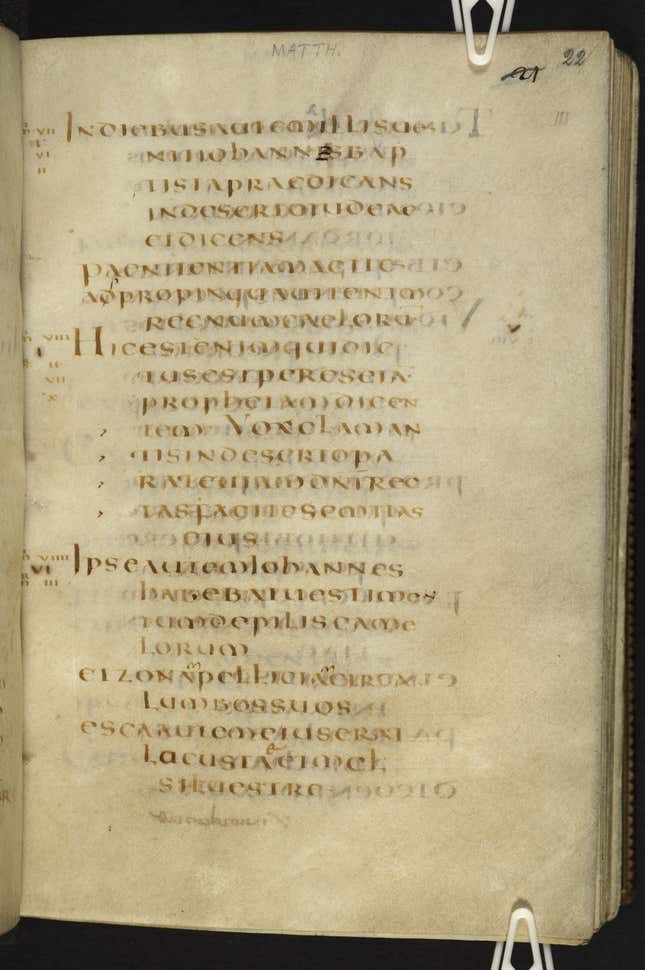 MATTH.
22
INDIEBUSAUTEMILLISUE
NITIOHANNESBAP
TISTAPRAEDICANS
INDESERTOIUDEAE
ETDICENS
PAENITENTIAMAGITE
ADPROPINQUAUITENIM
REGNUMCAELORU
HICESTENIMQUIDIC
TUSESTPERESEIA
PROPHETAMDICEN
TEM VOXCLAMAN
TISINDESERTOPA
RATEUIAMDNIREC
TASFACITESEMITAS
EIUS
IPSEAUTEMIOHANNES
HABEBATUESTIMEN
TUMDEPILISCAME
LORUM
ETZONAPELLICIACIRCA
LUMBOSSUOS
ESCAAUTEMEIUSERAT
LACUSTAETMEL
SILUESTRE